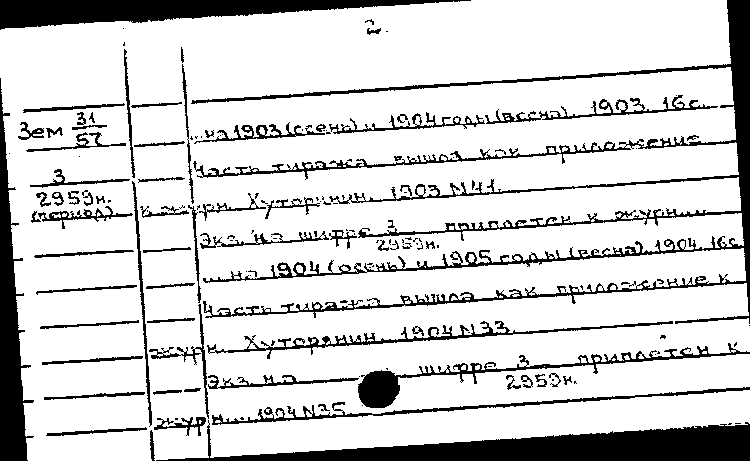 2.
Зем 31/57
... на 1903 (осень) и 1904 годы (весна). 1903. 16с.
Часть тиража вышла как приложение
3/2959н. (период)
к журн. Хуторянин. 1903 N41.
Экз. на шифре 3/2959н. приплетен к журн...
... на 1904 (осень) и 1905 годы (весна). 1904. 16с.
Часть тиража вышла как приложение к
журн. Хуторянин. 1904 N33.
Экз. на шифре 3/2959н. приплетен к
журн... 1904 N35